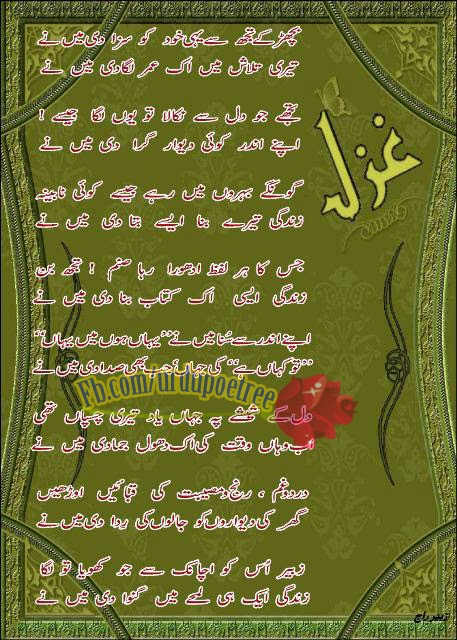 غزل
بچھڑ کے تجھ سے یہی خود کو سزا دی میں نے
تیری تلاش میں اک عمر لگا دی میں نے
تجھے جو دل سے نکالا تو یوں لگا جیسے !
اپنے اندر کوئی دیوار گرا دی میں نے
گونگے بہروں میں رہے جیسے کوئی نابینہ
زندگی تیرے بنا ایسے بتا دی میں نے
جس کا ہر لفظ ادھورا رہا صنم ! تجھ بن
زندگی ایسی اک کتاب بنا دی میں نے
اپنے اندر سے سُنا میں نے ’’یہاں ہوں میں یہاں‘‘
’’تو کہاں ہے‘‘ کی جہاں جب بھی صدا دی میں نے
Fb.com/urdupoetree
دل کے شیشے پہ جہاں یاد تیری چسپاں تھی
اب وہاں وقت کی اک دھول جما دی میں نے
درد و غم ، رنج و مصیبت کی قبائیں اوڑھیں
گھر کی دیواروں کو جالوں کی ردا دی میں نے
زبیر اُس کو اچانک سے جو کھویا تو لگا
زندگی ایک ہی لمحے میں گنوا دی میں نے